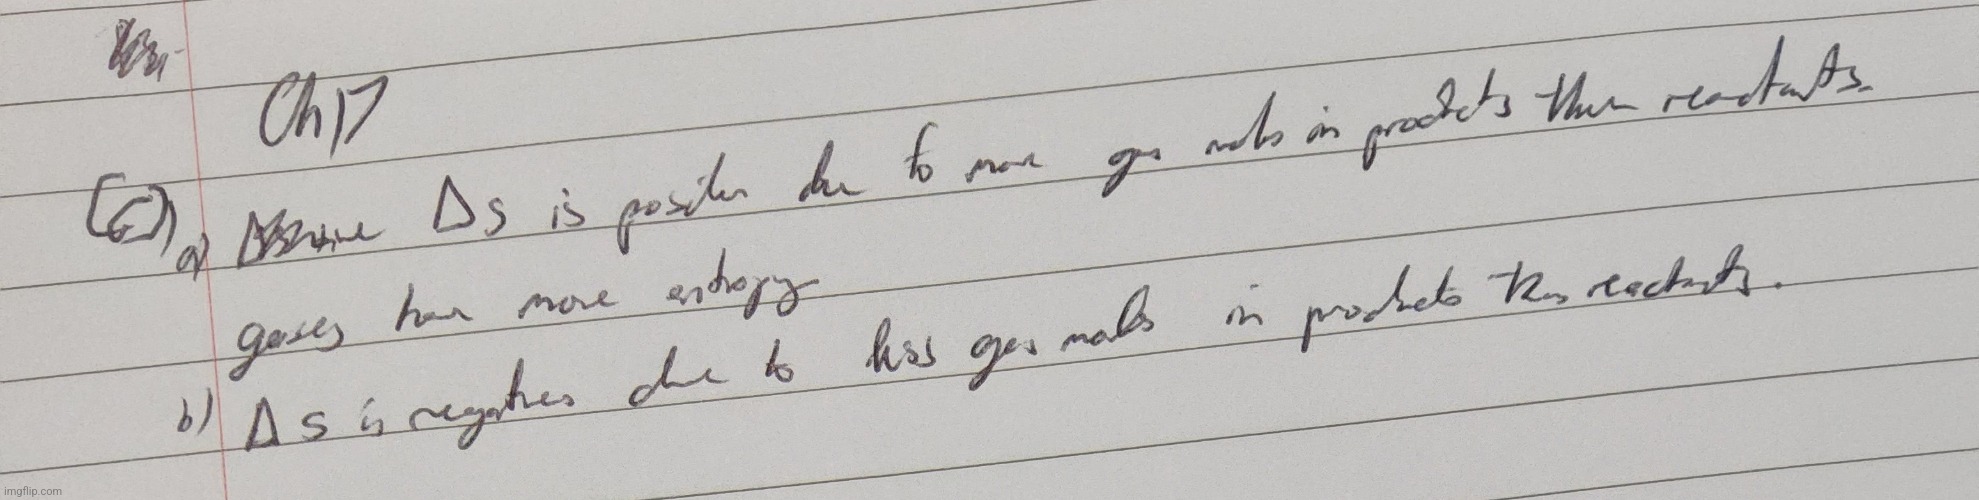 Ch 17
a) ΔS is positive due to more gas mols in products than reactants.
gases have more entropy
b) ΔS is negative due to less gas mols in products than reactants.
imgflip.com